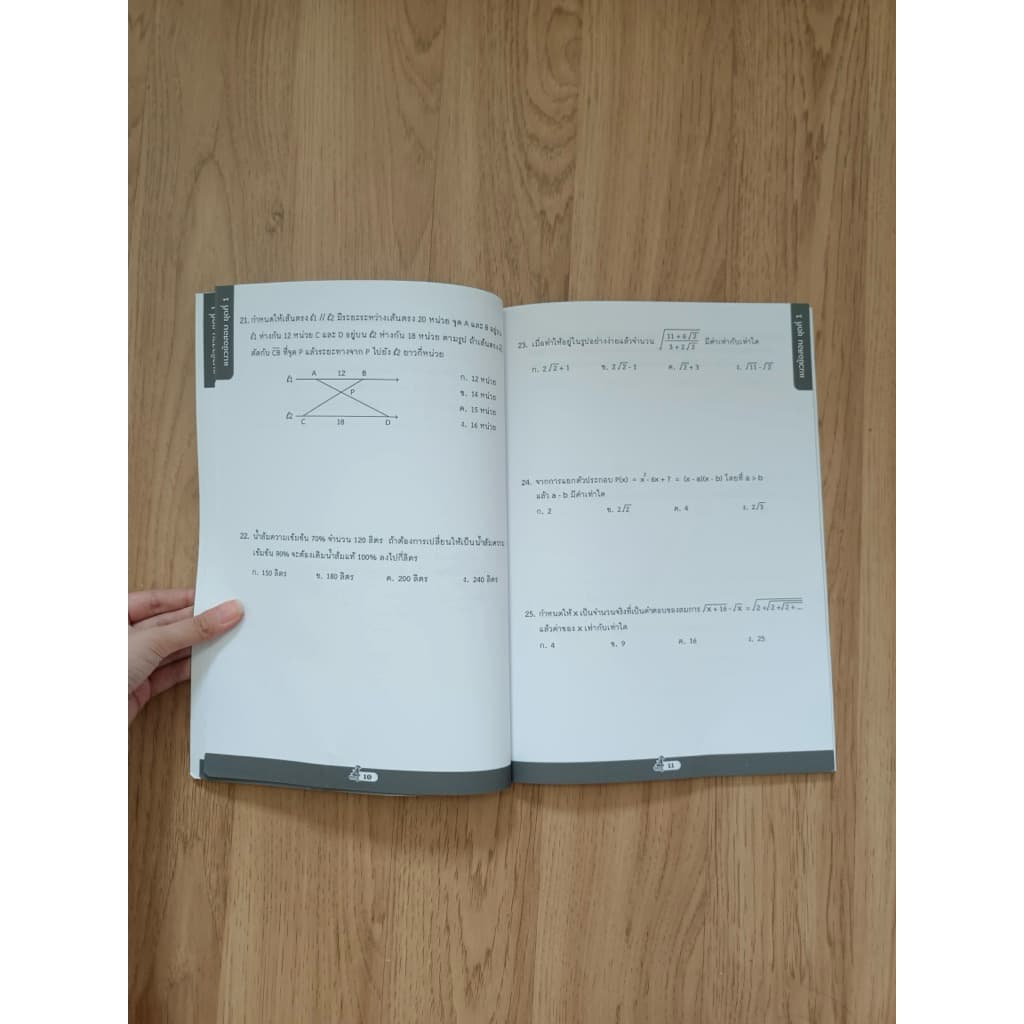 แนวข้อสอบ ชุดที่ 1
21. กำหนดให้เส้นตรง ℓ1 // ℓ2 มีระยะระหว่างเส้นตรง 20 หน่วย จุด A และ B อยู่บน
ℓ1 ห่างกัน 12 หน่วย C และ D อยู่บน ℓ2 ห่างกัน 18 หน่วย ตามรูป ถ้าเส้นตรง
ตัดกับ CB ที่จุด P แล้วระยะทางจาก P ไปยัง ℓ2 ยาวกี่หน่วย
ℓ1 A 12 B
P
ℓ2 C 18 D
ก. 12 หน่วย
ข. 14 หน่วย
ค. 15 หน่วย
ง. 16 หน่วย
22. น้ำส้มความเข้มข้น 70% จำนวน 120 ลิตร ถ้าต้องการเปลี่ยนให้เป็นน้ำส้มความ
เข้มข้น 90% จะต้องเติมน้ำส้มแท้ 100% ลงไปกี่ลิตร
ก. 150 ลิตร ข. 180 ลิตร ค. 200 ลิตร ง. 240 ลิตร
10
แนวข้อสอบ ชุดที่ 1
23. เมื่อทำให้อยู่ในรูปอย่างง่ายแล้วจำนวน √((11 + 6√2)/(3 + 2√2)) มีค่าเท่ากับเท่าใด
ก. 2√2 + 1 ข. 2√2 - 1 ค. √2 + 3 ง. √11 - √2
24. จากการแยกตัวประกอบ P(x) = x² - 6x + 7 = (x - a)(x - b) โดยที่ a > b
แล้ว a - b มีค่าเท่าใด
ก. 2 ข. 2√2 ค. 4 ง. 2√3
25. กำหนดให้ x เป็นจำนวนจริงที่เป็นคำตอบของสมการ √(x + 16) - √x = √(2 + √(2 + √(2 + ...
แล้วค่าของ x เท่ากับเท่าใด
ก. 4 ข. 9 ค. 16 ง. 25
11